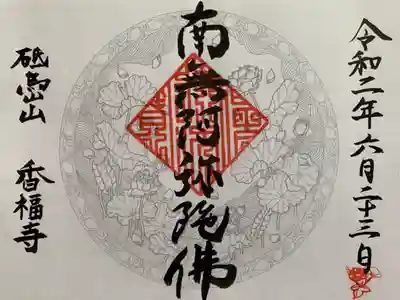 令和二年六月二十三日
南無阿弥陀佛
砥鹿山 香福寺